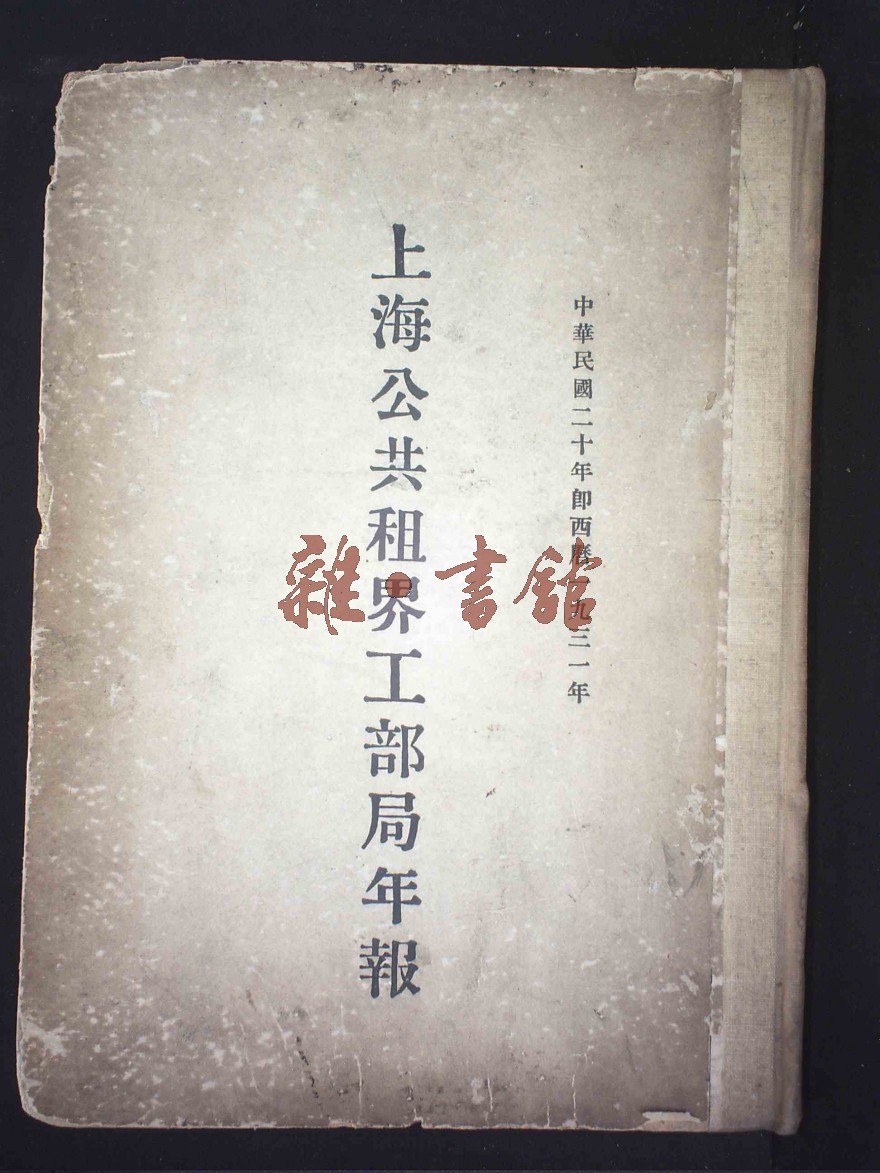 中華民國二十年即西曆一九三一年
上海公共租界工部局年報
雜·書館